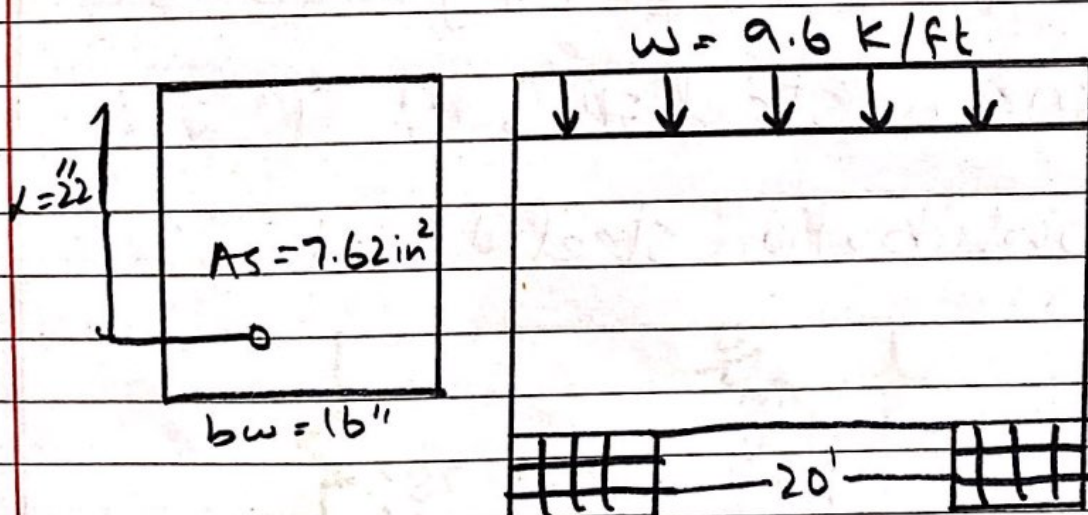 w = 9.6 K/ft
d = 22"
As = 7.62 in²
bw = 16"
20'